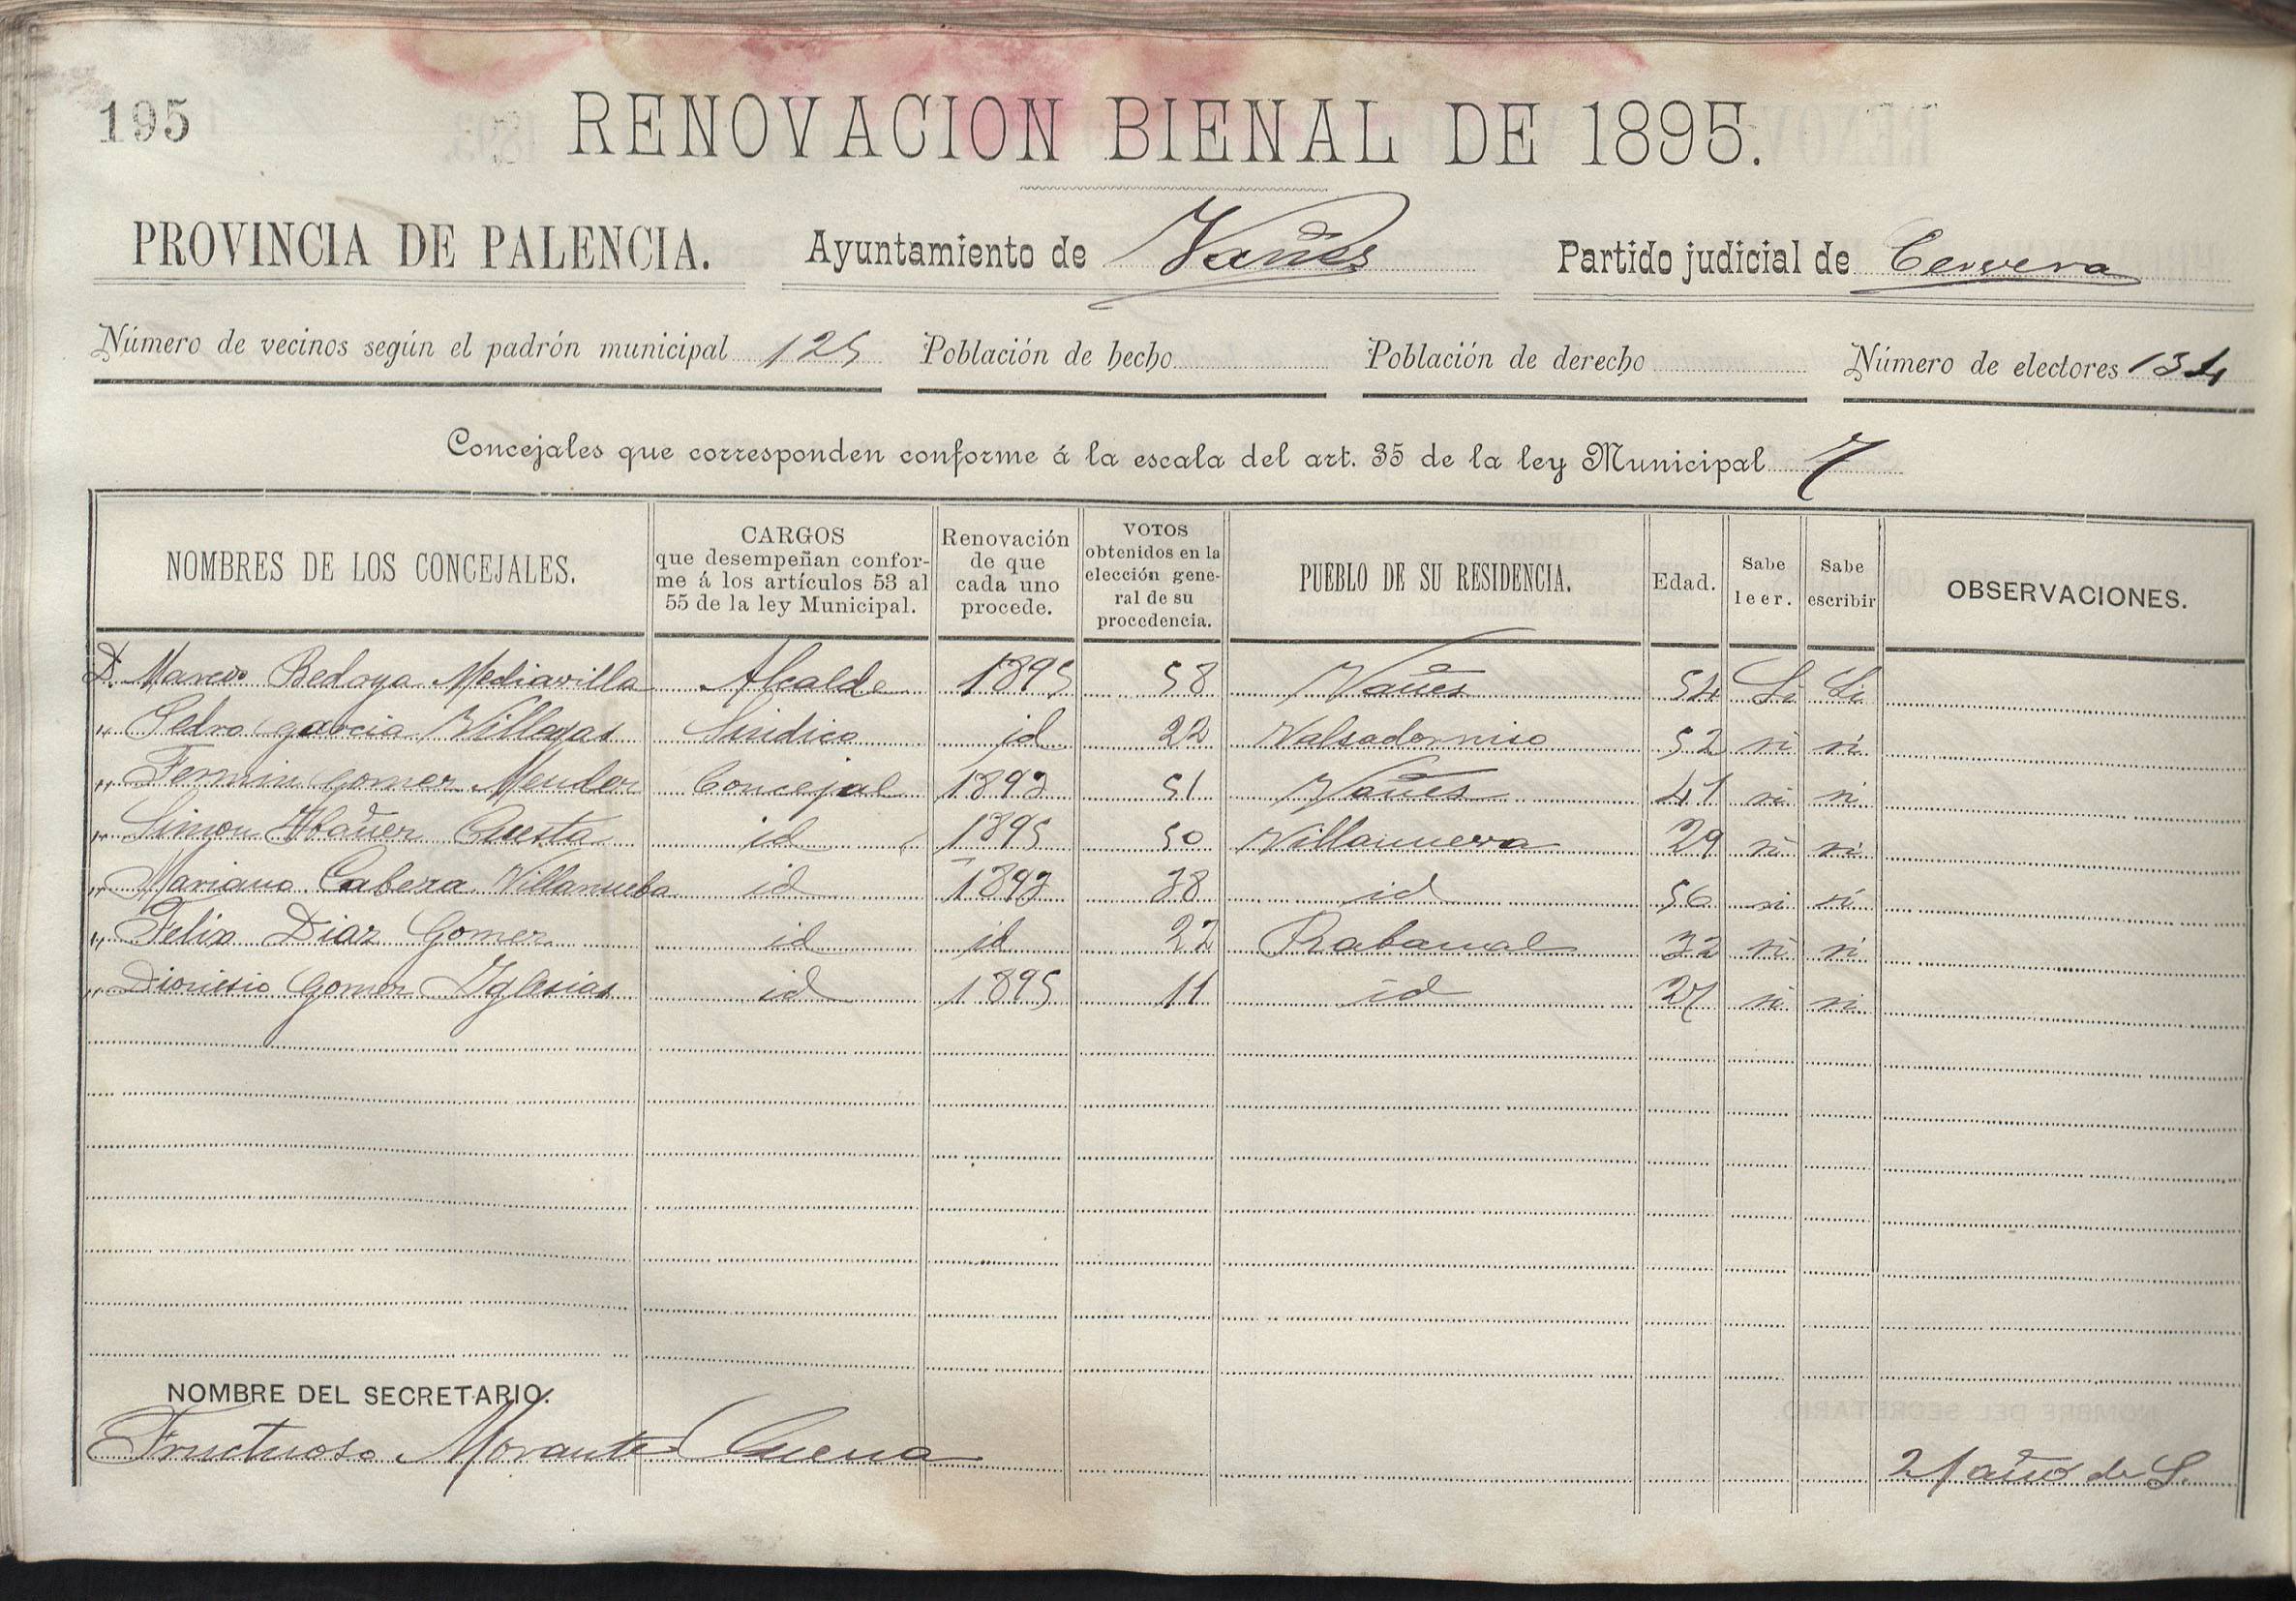 195
RENOVACION BIENAL DE 1895.
PROVINCIA DE PALENCIA. Ayuntamiento de Vañes Partido judicial de Cervera
Número de vecinos según el padrón municipal 125 Población de hecho Población de derecho Número de electores 134
Concejales que corresponden conforme á la escala del art. 35 de la ley Municipal 7
NOMBRES DE LOS CONCEJALES. CARGOS que desempeñan conforme á los artículos 53 al 55 de la ley Municipal. Renovación de que cada uno procede. VOTOS obtenidos en la elección general de su procedencia. PUEBLO DE SU RESIDENCIA. Edad. Sabe leer. Sabe escribir OBSERVACIONES.
D. Marcos Bedoya Mediavilla Alcalde 1895 58 Vañes 54 Si Si
" Pedro garcia Villegas Sindico id 22 Valsadornico 52 si si
" Fermin gomez Mendez Concejal 1893 51 Vañes 41 si si
" Simon Ybañez Cuesta id 1895 50 Villanueva 29 si si
" Mariano Cabeza Villanueba id 1893 38 id 56 si si
" Felix Diaz Gomez id id 22 Rabanal 32 si si
" Dionisio Gomez Yglesias id 1895 11 id 27 si si
NOMBRE DEL SECRETARIO.
Fructuoso Morante Cuena 21 años de S.